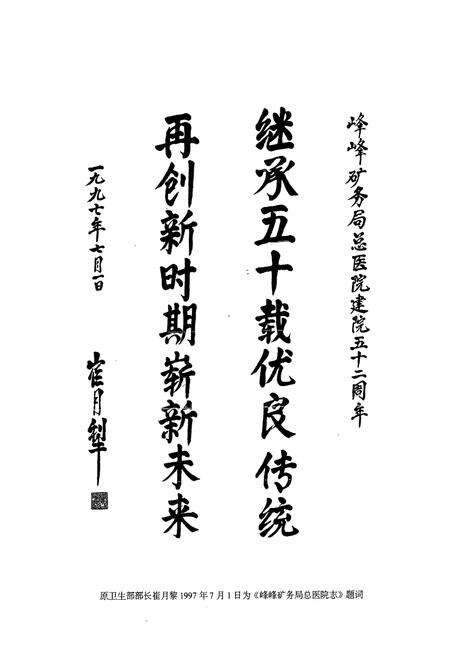 峰峰矿务局总医院建院五十二周年
继承五十载优良传统
再创新时期崭新未来
一九九七年七月一日
崔月犁
原卫生部部长崔月黎1997年7月1日为《峰峰矿务局总医院志》题词